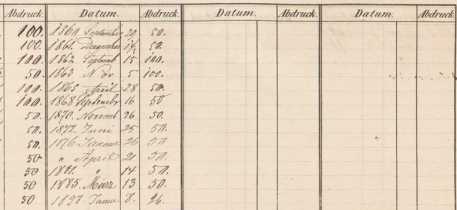 Abdruck. Datum. Abdruck. Datum. Abdruck. Datum. Abdruck.
100. 1860 September 20 50.
100. 1861. December 50.
100. 1862. Septemb 15 100.
50. 1863 Nov 5 100.
100. 1865 April 28 50.
100. 1868 September 16 50
50. 1870. Novemb 26 50.
50. 1872. Juni 25 50.
50. 1876 Januar 26 50.
50 " April 21 50.
50 1881. " 14 50.
50 1885. März 13 50.
50 1897 Janu 8. 26.